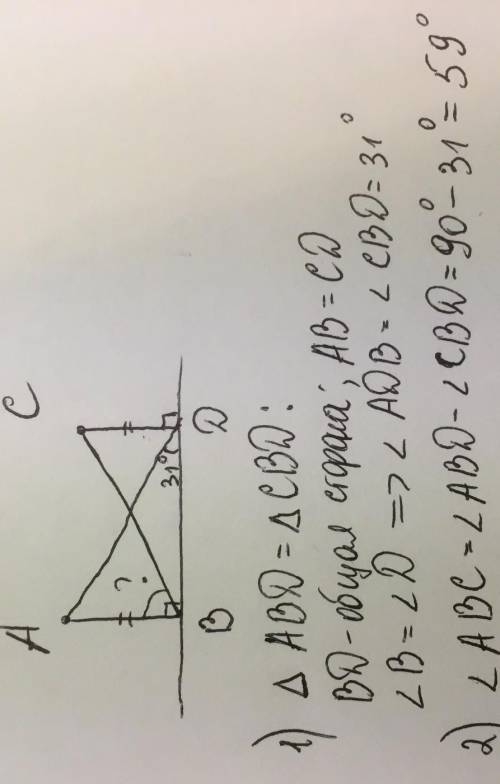 A C
?
31°
B D
1) △ ABD = △ CBD:
BD - общая сторона; AB = CD
∠B = ∠D => ∠ ADB = ∠ CBD = 31°
2) ∠ ABC = ∠ ABD - ∠ CBD = 90° - 31° = 59°